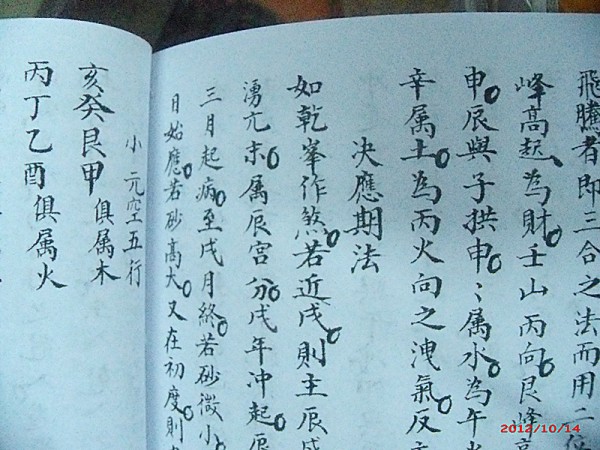 飛騰者即三合之法而用二位
峰高起、為財。壬山丙向。艮峰高
申。辰與子拱申。〻属水。為午
辛属土。為丙火向之洩氣。反
决應期法
如乾峯作煞。若近戌。則主辰戌
湧亢末。属辰宫分。戌年冲起。辰
三月起病。至戌月終。若砂微小。
日始應。若砂高大。又在初度。則
小元空五行
亥癸艮甲俱属木
丙丁乙酉俱属火
2012/10/14